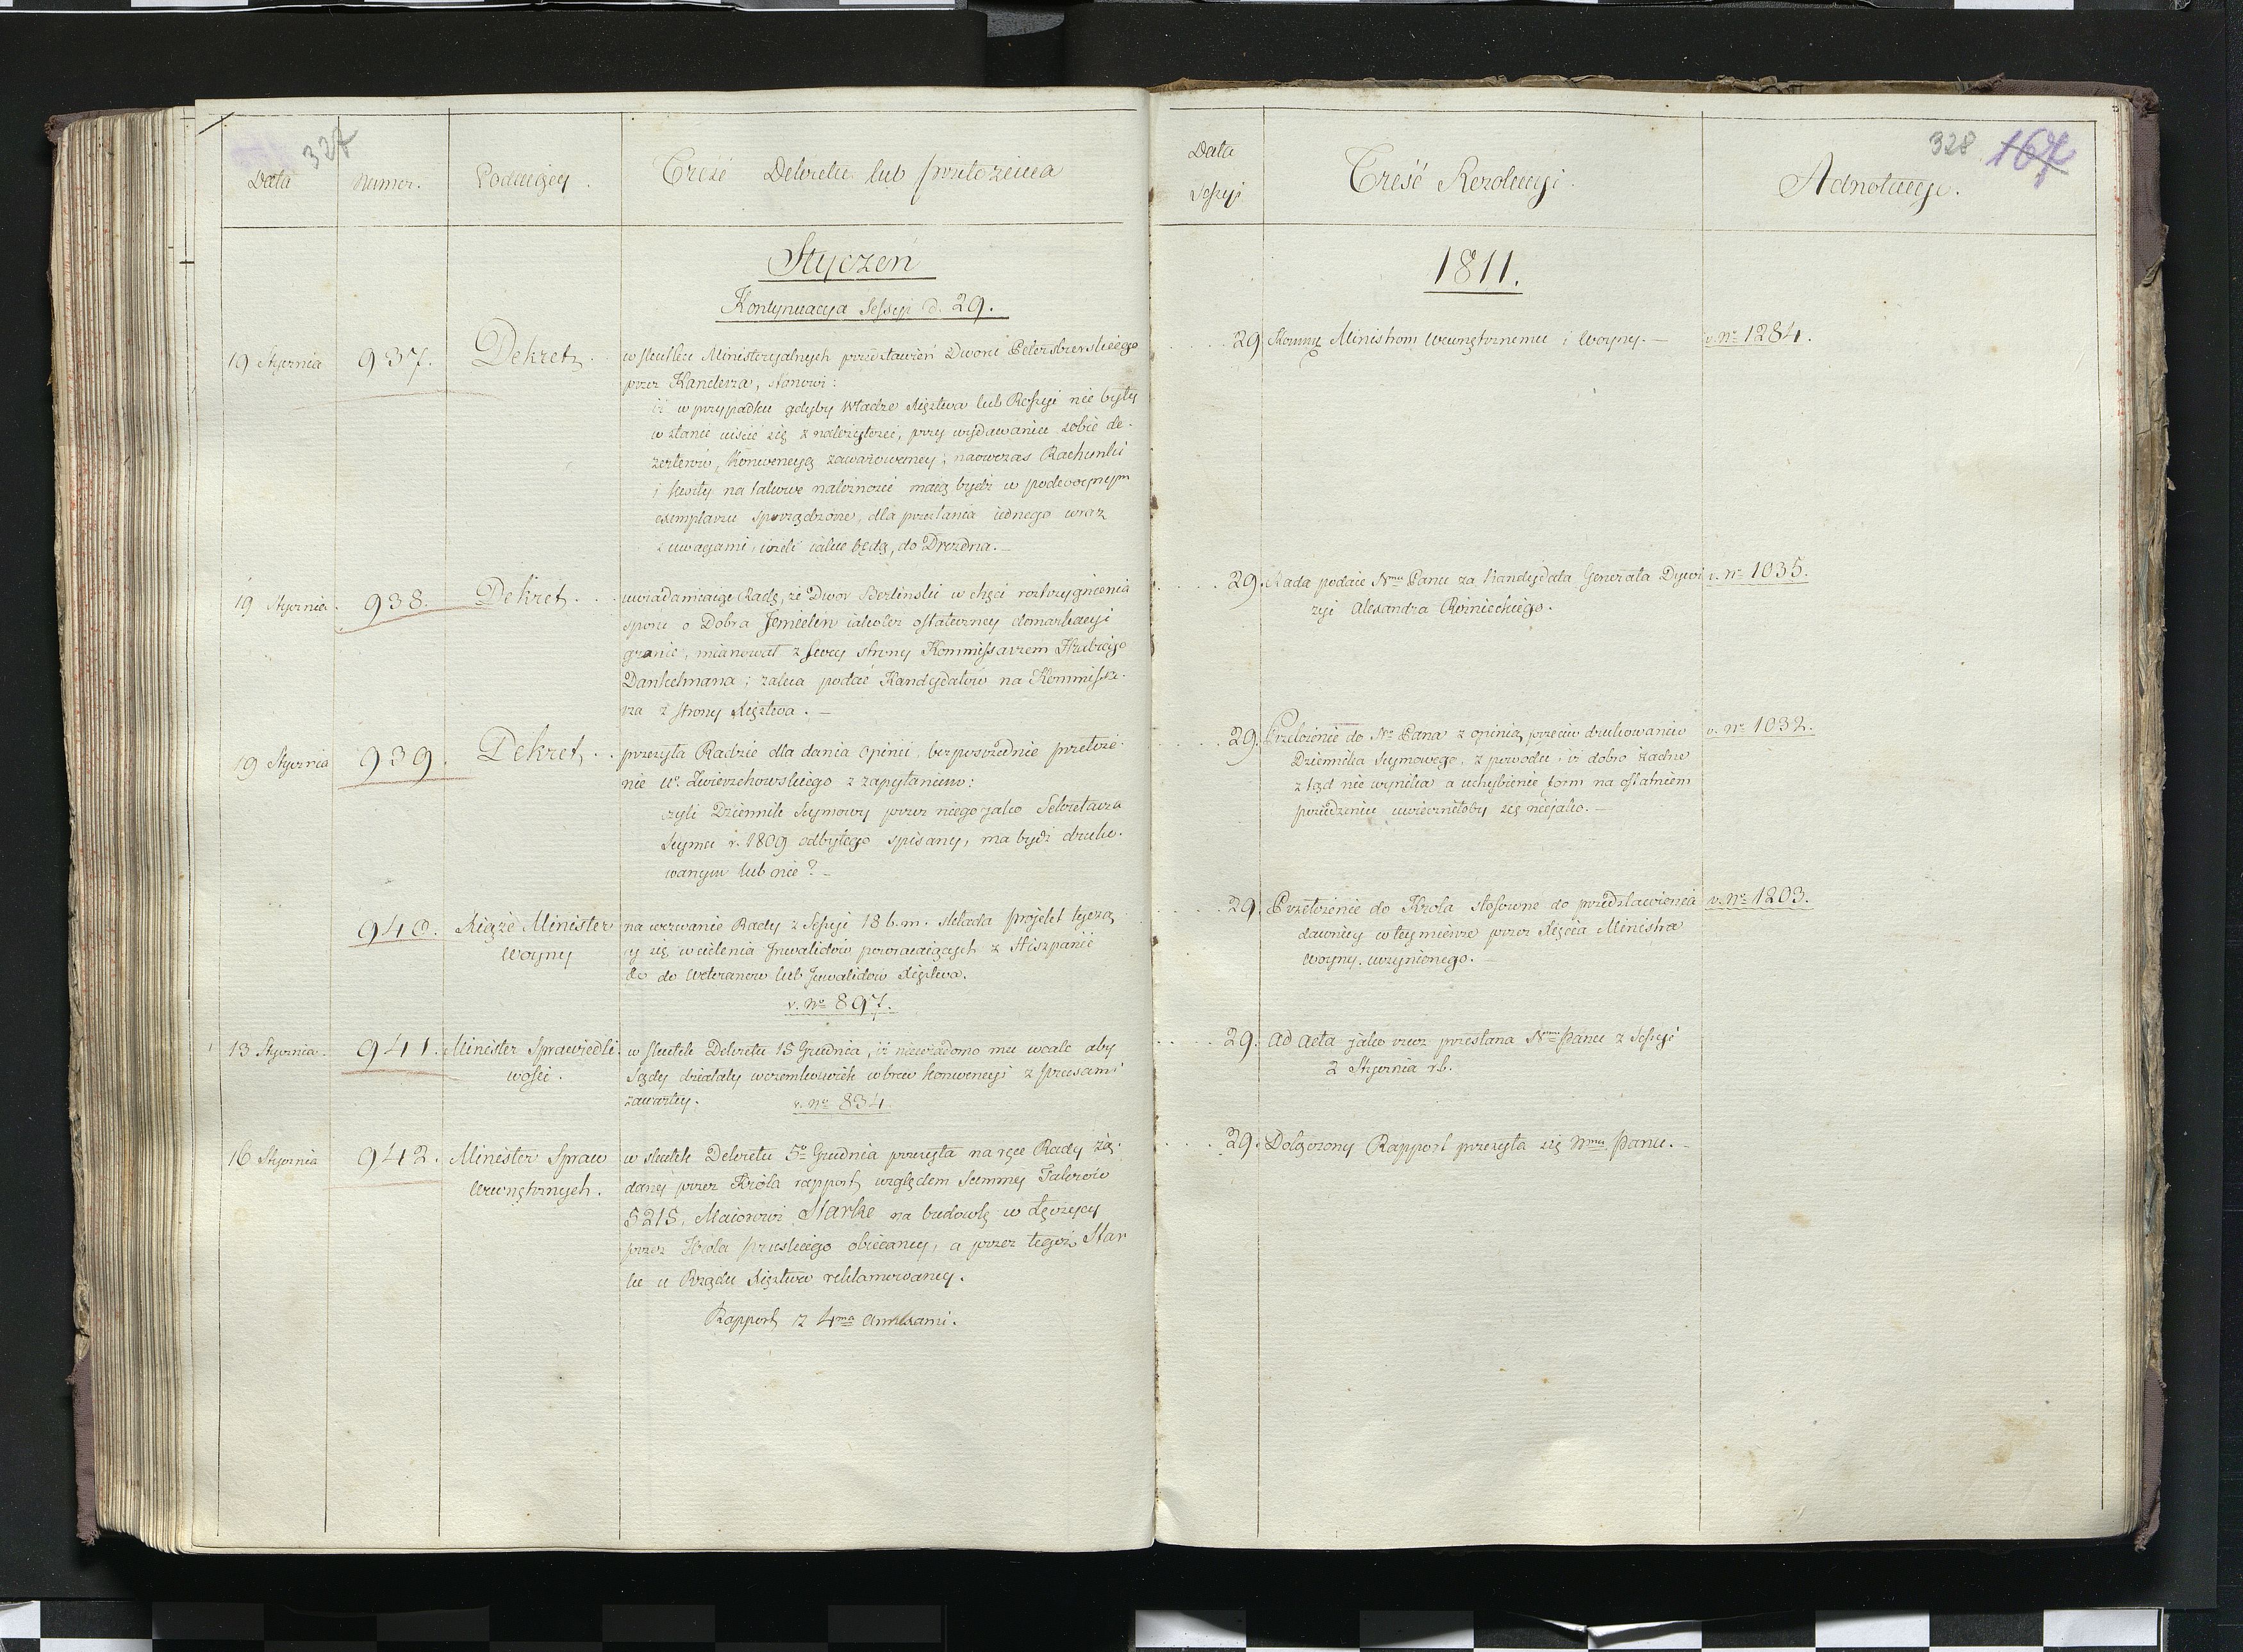 327
Data
Numer.
Podaiący.
Treść Dekretu lub przełożenia
Styczeń
Kontynuacyja Sessyi d. 29.
19 Stycznia
937.
Dekret
w skutku Ministeryalnych przedstawień Dworu Petersburskiego
przez Kanclerza, stanowi:
iż w przypadku gdyby Władze Xięztwa lub Rossyi nie były
w stanie uiścić się z należytości, przy wydawaniu sobie de-
zerterów, Konwencyą zawarowaney; naowczas Rachunki
i kwity na takowe należności maią bydź w podwoynym
exemplarzu sporządzone, dla przesłania iednego wraz
z uwagami, ieżeli iakie będą, do Drezdna.
19 Stycznia.
938.
Dekret
uwiadamiaiąc Radę, że Dwor Berlinski w chęci roztrzygnienia
sporu o Dobra Jemielen iakoteż ostateczney demarkacyi
granic, mianował z swey strony Kommissarzem Hrabiego
Dankelmana; zaleca podać Kandydatów na Kommissa-
rza z strony Xięztwa.
19 Stycznia
939.
Dekret
przesyła Radzie dla dania Opinii, bezpośrednie przełoże-
nie Ur. Zwierzchowskiego z zapytaniem:
czyli Dziennik Seymowy przez niego jako Sekretarza
Seymu r. 1809 odbytego spisany, ma bydź druko-
wanym lub nie?
940.
Xiąże Minister
Woyny
na wezwanie Rady z Sessyi 18 b.m. składa projekt tyczą-
cy się wcielenia Inwalidów powracaiących z Hiszpanii
do Weteranow lub Inwalidow Xięztwa.
v. No 897.
13 Stycznia.
941.
Minister Sprawiedli-
wości.
w skutek Dekretu 15 Grudnia, iż niewiadomo mu wcale aby
Sądy działały w czemkolwiek wbrew konwencyi z Prusami
zawartey.
v. No 834
16 Stycznia
942.
Minister Spraw
Wewnętrznych.
w skutek Dekretu 5o Grudnia przesyła na ręce Rady żą-
dany przez Króla rapport względem Summy Talerów
5215, Maiorowi Starke na budowlę w Łęczycy
przez Krola Pruskiego obiecaney, a przez tegoż Star
ke u Rządu Xięztwa reklamowaney.
Rapport z 4ma annexami.
328 167
Data
Sessyi
Treść Rezolucyi.
Adnotacye.
1811.
29
Ministrom Wewnętrznemu i Woyny.
v. No 1284.
29.
Rada podaie Nmu Panu za Kandydata Generała Dywi
zyi Alexandra Rożnieckiego.
v. No 1035.
29.
Przełożenie do No Pana z opinią przeciw drukowaniu
Dziennika Seymowego, z powodu, iż dobro żadne
ztąd nie wyniknie a uchybienie form na ostatniem
posiedzeniu uwieczniłoby się niejako.
v. No 1032.
29.
Przełożenie do Króla stosowne do przedstawienia
dawniey w tey mierze przez Xięcia Ministra
Woyny uczynionego.
v. No 1203.
29.
ad acta jako rzecz przesłana Nmu Panu z Sessyi
2 Stycznia r.b.
29.
Dołączony Rapport przesyła się Nmu Panu.